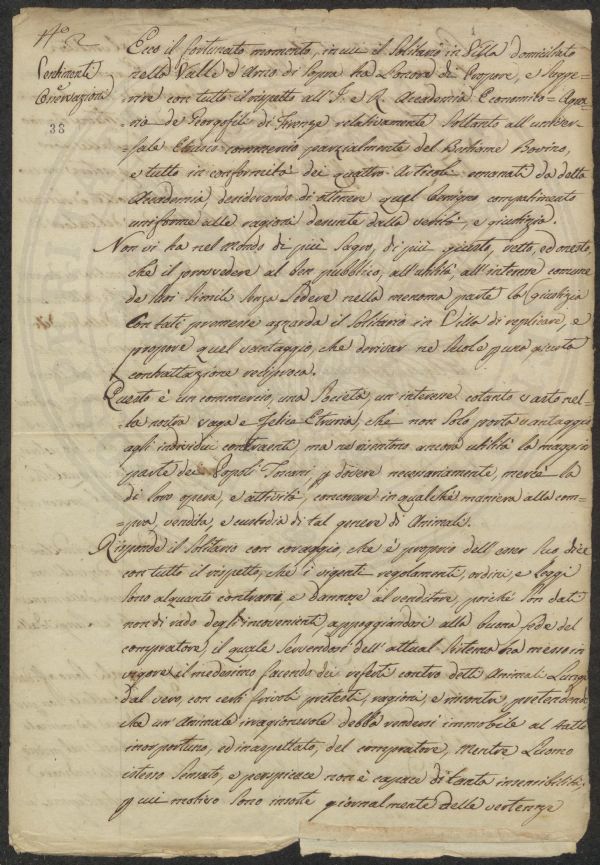 N.° 2
Sentimenti
e Osservazioni
38
Ecco il fortunato momento, in cui il Solitario in Villa domiciliato
nella Valle d'Arno di Sopra ha L'onore di Proporre, e Sugge=
=rire con tutto il rispetto all'I. e R. Accademia Economico=Agra=
=ria de Georgofili di Firenze relativamente Soltanto all'univer=
=sale Etrusco commercio parzialmente del Bestiame Bovino,
e tutto in conformità dei quattro Articoli emanati da detta
Accademia, desiderando di ottenere quel benigno compatimento
uniforme alle ragioni desunte dalla verità, e giustizia.
Non vi ha nel Mondo di più Sagro, di più giusto, retto, ed onesto,
che il provvedere al ben pubblico, all'utilità, all'interesse comune
de Suoi Simili Senza Ledere nella menoma parte la Giustizia
Con tali premesse azzarda il Solitario in Villa di replicare, e
proporre quel vantaggio, che derivar ne Suole p una giusta
contrattazione reciproca.
Questo è un commercio, una Società, un interesse cotanto vasto nel=
=la nostra vaga e Felice Etruria, che non Solo porta vantaggio
agli individui contraenti, ma ne risentono ancora utilità la maggior
parte dei Popoli Toscani p dovere necessariamente, mercè la
di loro opera, e attività, concorrere in qualche maniera alla com=
=pra, vendita, e custodia di tal genere di Animali.
Risponde il Solitario con coraggio, che è proprio dell' esser Suo, dice
con tutto il rispetto, che i vigenti regolamenti, ordini, e Leggi
Sono alquanto contrarie e dannose al venditore, poichè Son dati
non di rado degli inconvenienti, appoggiandosi alla buona fede del
compratore, il quale Servendosi dell' attual Sistema ha messo in
vigore il medesimo facendo dei referti contro detti Animali Lungi
dal vero, con certi frivoli pretesti, ragioni, e riscontri, pretendendo,
che un' Animale irragionevole debba rendersi immobile al tatto
inopportuno, ed inaspettato, del compratore, mentre L'uomo
istesso Sensato, e perspicace non è capace di tanta insensibilità,
p cui motivo Sono insorte giornalmente delle vertenze